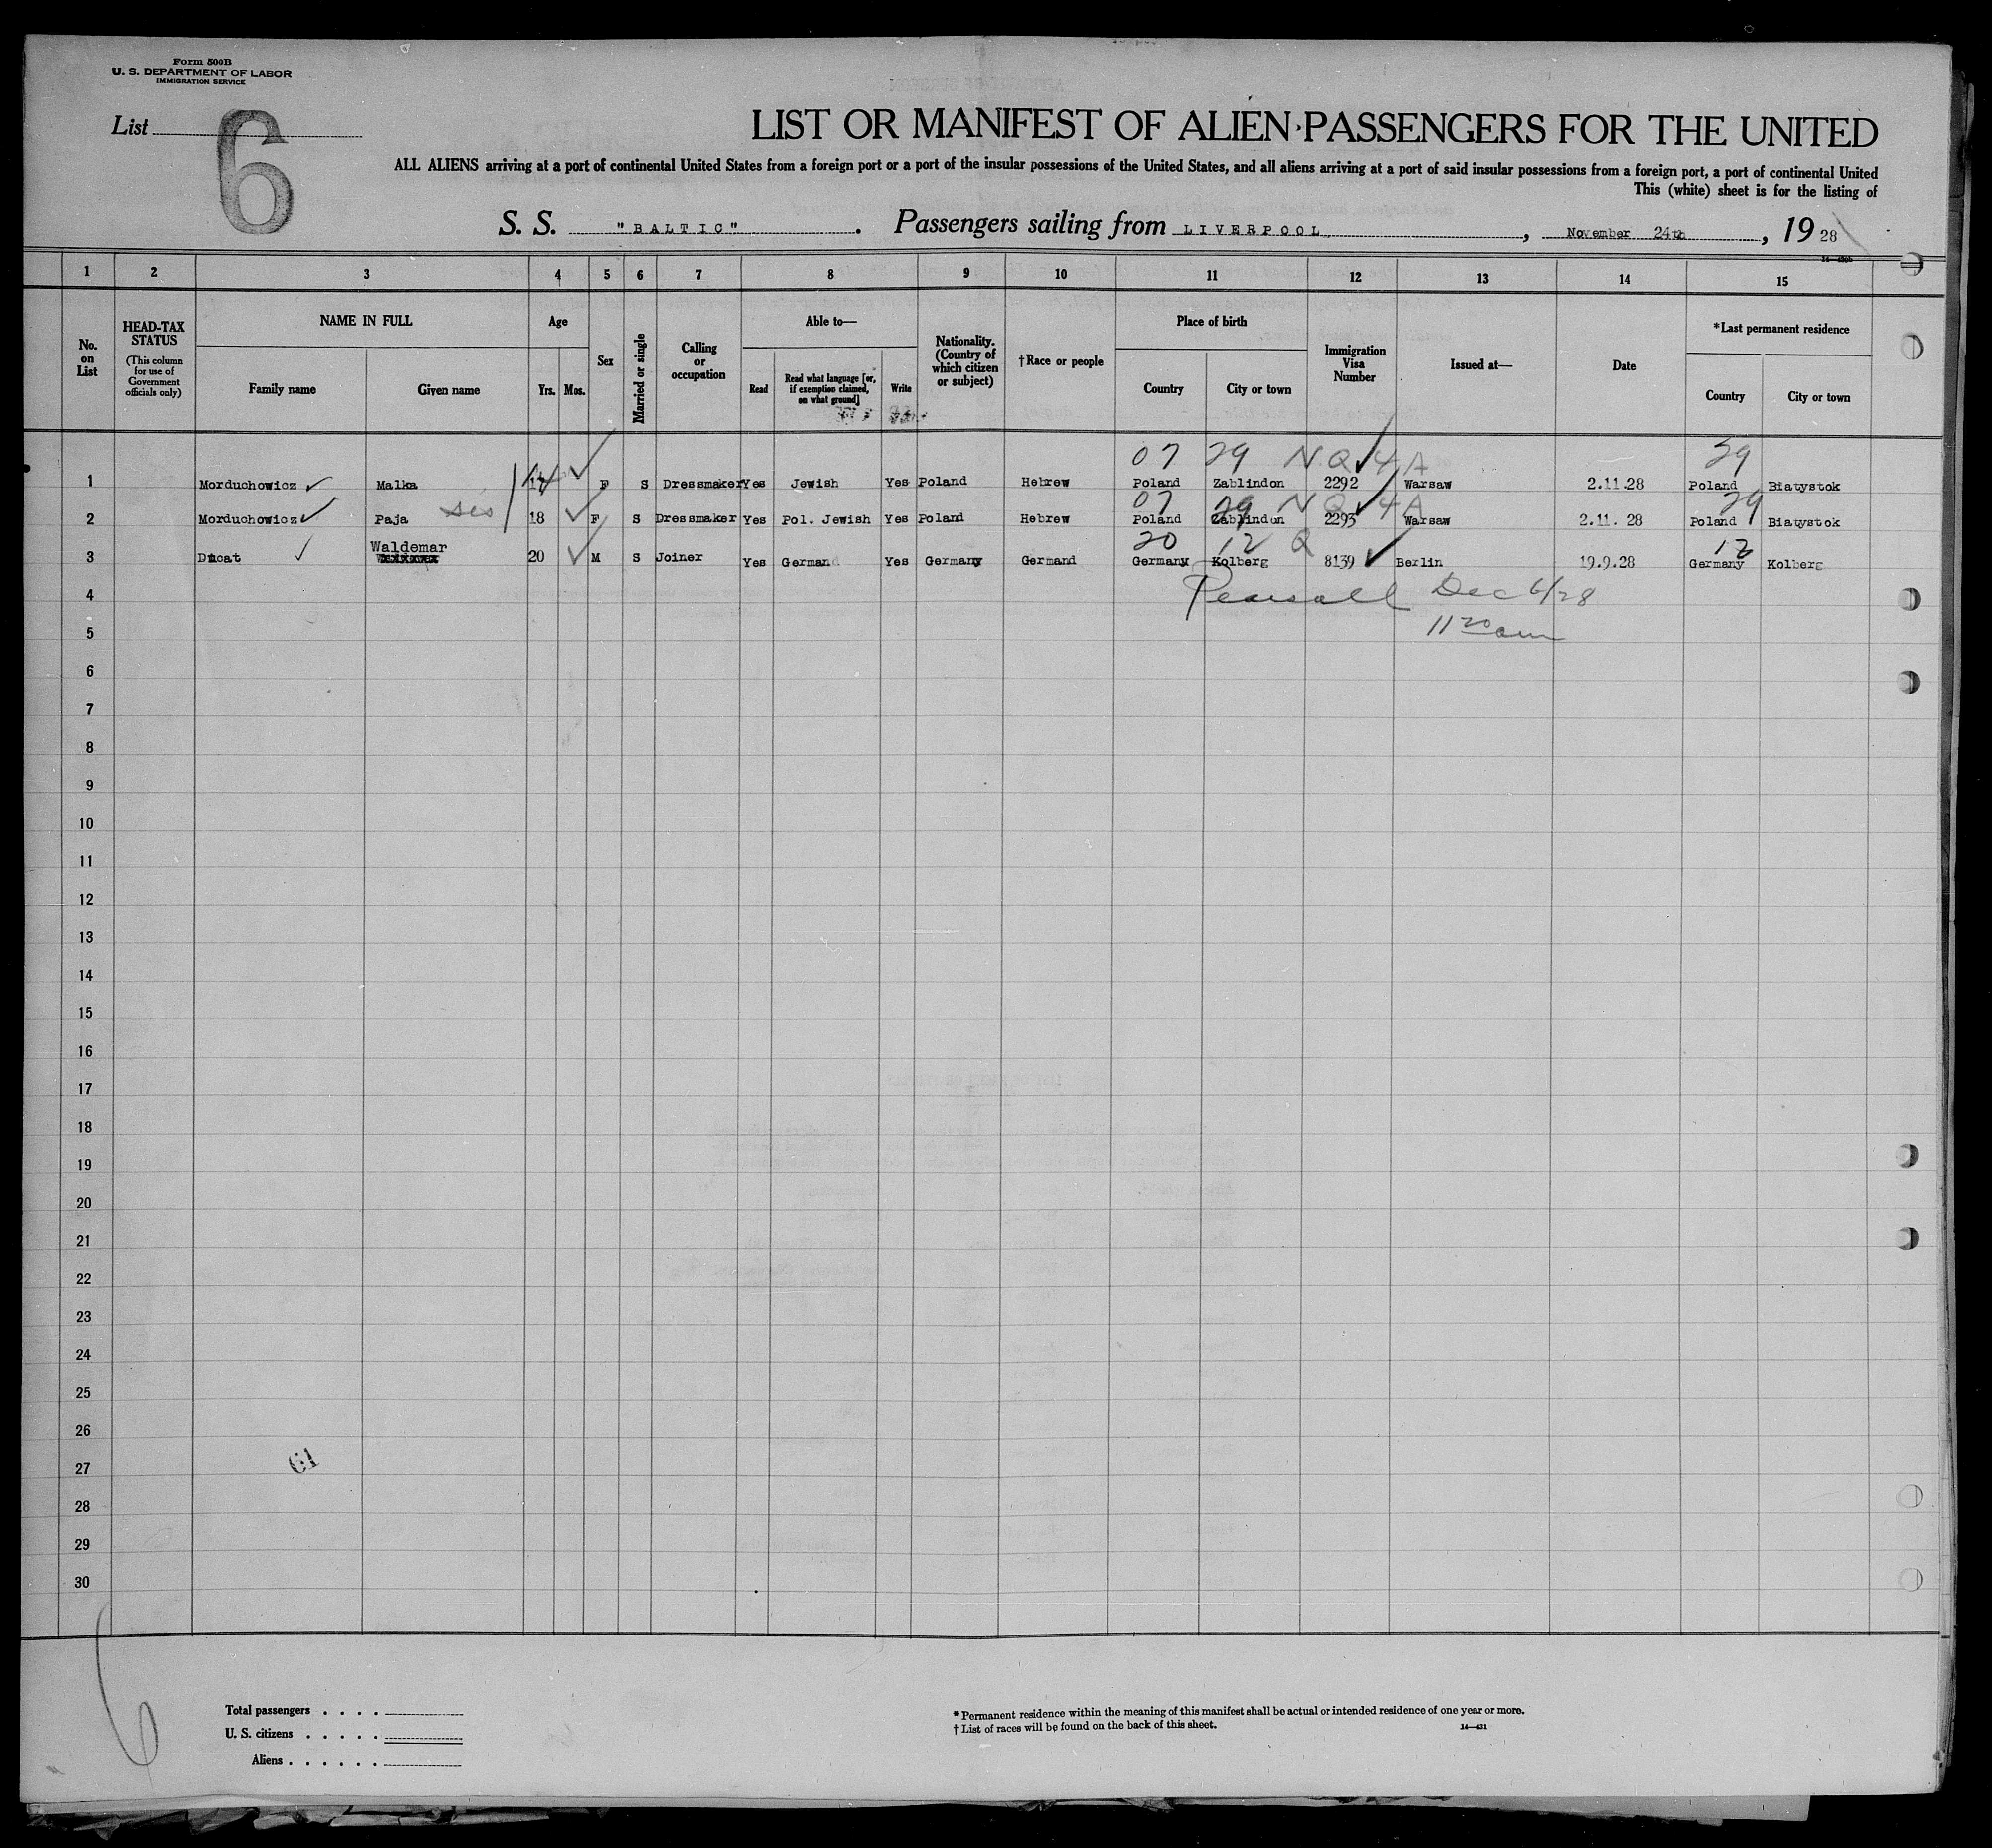 Form 500B
U. S. DEPARTMENT OF LABOR
IMMIGRATION SERVICE
List 6
LIST OR MANIFEST OF ALIEN PASSENGERS FOR THE UNITED
ALL ALIENS arriving at a port of continental United States from a foreign port or a port of the insular possessions of the United States, and all aliens arriving at a port of said insular possessions from a foreign port, a port of continental United
This (white) sheet is for the listing of
S. S. "BALTIC". Passengers sailing from LIVERPOOL, November 24th, 1928
1 2 3 4 5 6 7 8 9 10 11 12 13 14 15
No. on List
HEAD-TAX STATUS
(This column for use of Government officials only)
NAME IN FULL
Family name Given name
Age
Yrs. Mos.
Sex
Married or single
Calling or occupation
Able to—
Read
Read what language [or, if exemption claimed, on what ground]
Write
Nationality. (Country of which citizen or subject)
†Race or people
Place of birth
Country City or town
Immigration Visa Number
Issued at—
Date
*Last permanent residence
Country City or town
07 29 N Q 4 A 29
1 Morduchowicz Malka F S Dressmaker Yes Jewish Yes Poland Hebrew Poland Zablindon 2292 Warsaw 2.11.28 Poland Biatystok
sis 07 29 N Q 4 A 29
2 Morduchowicz Paja 18 F S Dressmaker Yes Pol. Jewish Yes Poland Hebrew Poland Zablindon 2293 Warsaw 2.11. 28 Poland Biatystok
20 12 Q 12
3 Ducat Waldemar 20 M S Joiner Yes German Yes Germany German Germany Kolberg 8139 Berlin 19.9.28 Germany Kolberg
4 Pearsall Dec 6/28
5 11 20 am
6
7
8
9
10
11
12
13
14
15
16
17
18
19
20
21
22
23
24
25
26
27
61
28
29
30
6
Total passengers . . . .
U. S. citizens . . . . .
Aliens . . . . . .
* Permanent residence within the meaning of this manifest shall be actual or intended residence of one year or more.
† List of races will be found on the back of this sheet.
14—421